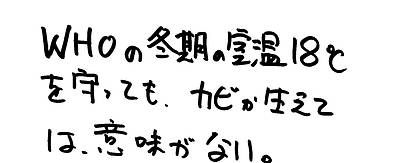 WHOの冬期の室温18℃
を守っても、カビが生えて
は、意味がない。